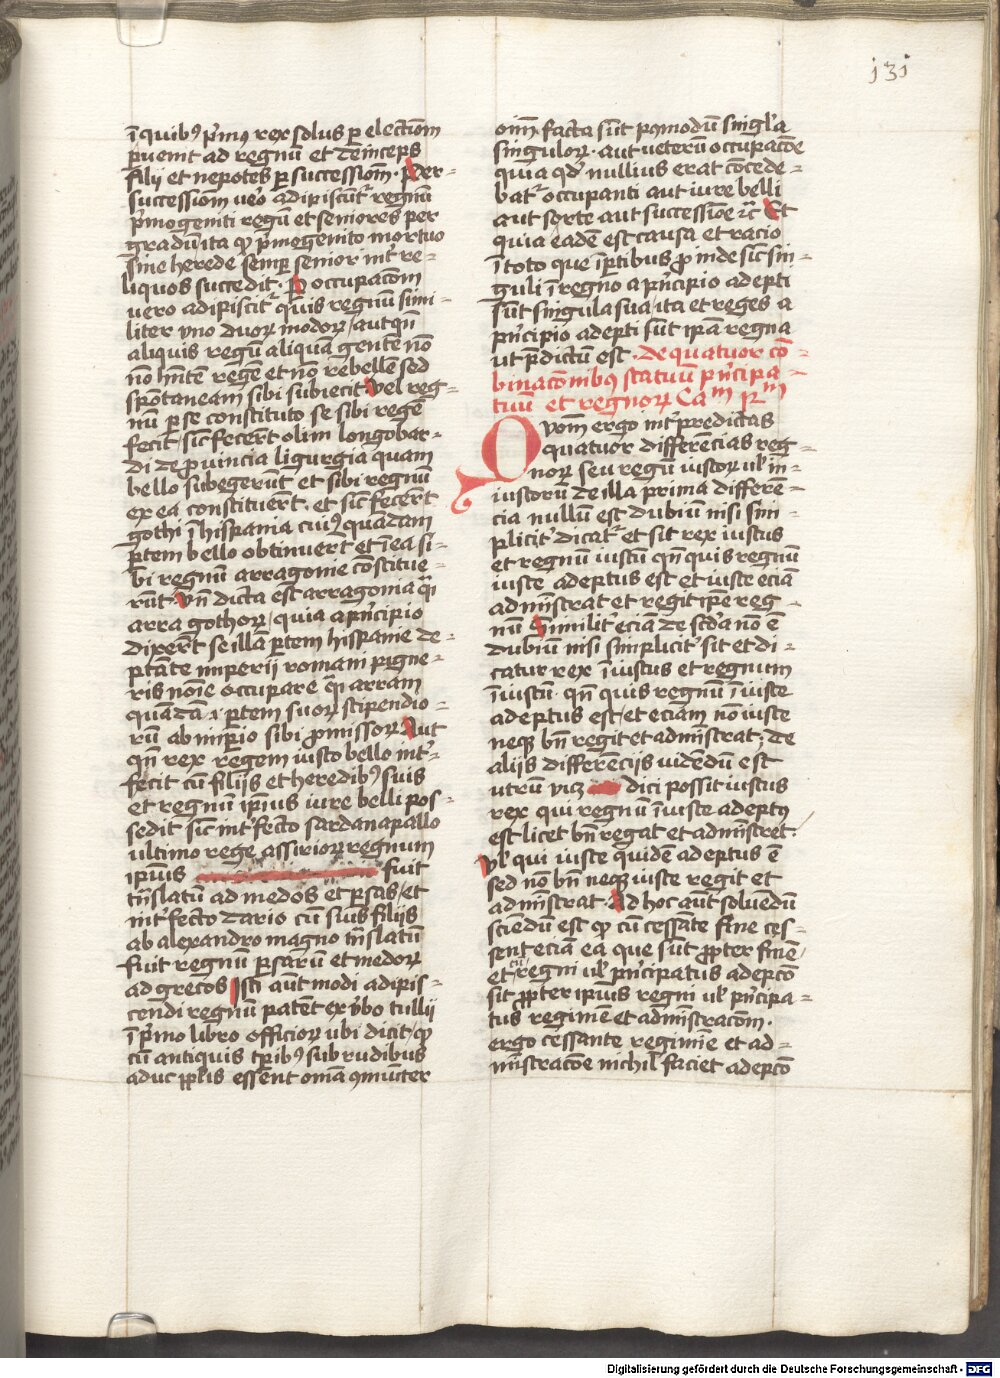 131
ī quibꝰ p̄mꝰ rex solus ꝑ electiom̄
ꝑuenit ad regnū et deinceps
filij et nepotes ꝑ successiom̄ · Per-
successiom̄ ueͦo adipiscūtᷣ regnū
p̄mogeniti regū et seniores per
gradū ita ꝙ p̄megenito mortuo
sine herede semꝑ senior intͥ re-
liquos succedit · Per occupacom̄
uero adipiscitᷣ quis regnū simi-
liter vno duoꝝ modoꝝ / aut qn̄
aliquis regū aliquā gentē nō
nō hn̄tē regē et nō rebellē sed
spōtaneam sibi subiecit · vel reg-
nū ꝑ se constituto se sibi regē
fecit / sic̄ fecer̄t olim longobar-
di de ꝓuincia ligurgia quam
bello subegerūt et sibi regnū
ex ea constituer̄t · et sic̄ fecer̄t
gothi ī hispania cuiꝰ quādam
ꝑtem bello obtinuer̄t et ī ea si-
bi regnū arragonie cōstitue-
rūt · vn̄ dicta est arragonia q̄i
arra gothoꝝ / quia a pͥncipio
dixer̄t se illā ꝑtem hispanie de-
ꝑtāte imperii romani pigne-
ris noīe occupare q̄i arram
quādā .i. ꝑtem suoꝝ stipendio-
rū ab imꝑio sibi ꝓmissoꝝ Aut
qn̄ rex regem iusto bello intͥ-
fecit cū filiis et heredibꝰ suis
et regnū ip̄ius iure belli pos-
sedit sic̄ intͥfecto sardanapallo
ultimo rege assirioꝝ regnum
ipius fuit
tn̄slatū ad medos et ꝑsas / et
intͥfecto dario cū suis filiis
ab alexandro magno tn̄slatū
fuit regnū ꝑsarū et medoꝝ
ad grecos Isti aūt modi adipis-
cendi regnū patēt ex v̄bo tullii
ī pͥmo libro officioꝝ ubi dicit / ꝙ
cū antiquis tꝑibꝰ sub rudibus
aduc ppl̄is essent om̄a ꝯmūiter
oīm facta sūt ꝓmodū singl̄a
singuloꝝ · aut ueterū occupacōe
quia qd̄ nullius erat cōcede-
batᷣ occupanti aut iure belli
aut sorte aut successiōe ⁊c̄ Et
quia eadē est causa et racio
ī toto que ī ꝑtibus ꝓ inde sic̄ sin-
guli ī regno a pͥncipio adepti
sūt singula sua / ita et reges a
pͥncipio adepti sūt ipā regna
ut p̄dictū est · de quatuor cō-
binacōnibꝰ statuū pͥncipa-
tuū et regnoꝝ Caᵐ pͥᵐ
Qvom̄ ergo intͥ predictas
quatuor differēcias reg-
noꝝ seu regū iustoꝝ ul̄ in-
iustorū de illa prima differē-
cia nullū est dubiū nisi sim-
plicitͥ dicatᷣ et sit rex iustus
et regnū iustū qn̄ quis regnū
iuste adeptus est et iuste eciā
admīstrat et regit ip̄e reg-
nū Similit̄ eciā de scd̄a nō ē
dubiū nisi simplicitͥ sit et di-
catur rex īiustus et regnum
īiustū · qn̄ quis regnū īiuste
adeptus est / et eciam non iuste
neqꝫ bn̄ regit et admīstrat ; de
aliis differēciis uidendū est
utrū vicꝫ dici possit iustus
rex qui regnū īiuste adeptꝰ
est licet bn̄ regat et admīstret ·
vl̄ qui iuste quidē adeptus ē
sed nō bn̄ neqꝫ iuste regit et
admīstrat · Ad hoc aūt soluendū
sciendū est ꝙ cū cessante fine ces-
sent eciam ea que sūt ꝓpter finē /
et cū regni ul̄ pͥncipatus adepcō
sit ꝓpter ip̄ius regni ul̄ pͥncipa-
tus regimē et admīstracom̄ ·
ergo cessante regimīe et ad-
mīstracōe nichil faciet adepcō
Digitalisierung gefördert durch die Deutsche Forschungsgemeinschaft - DFG